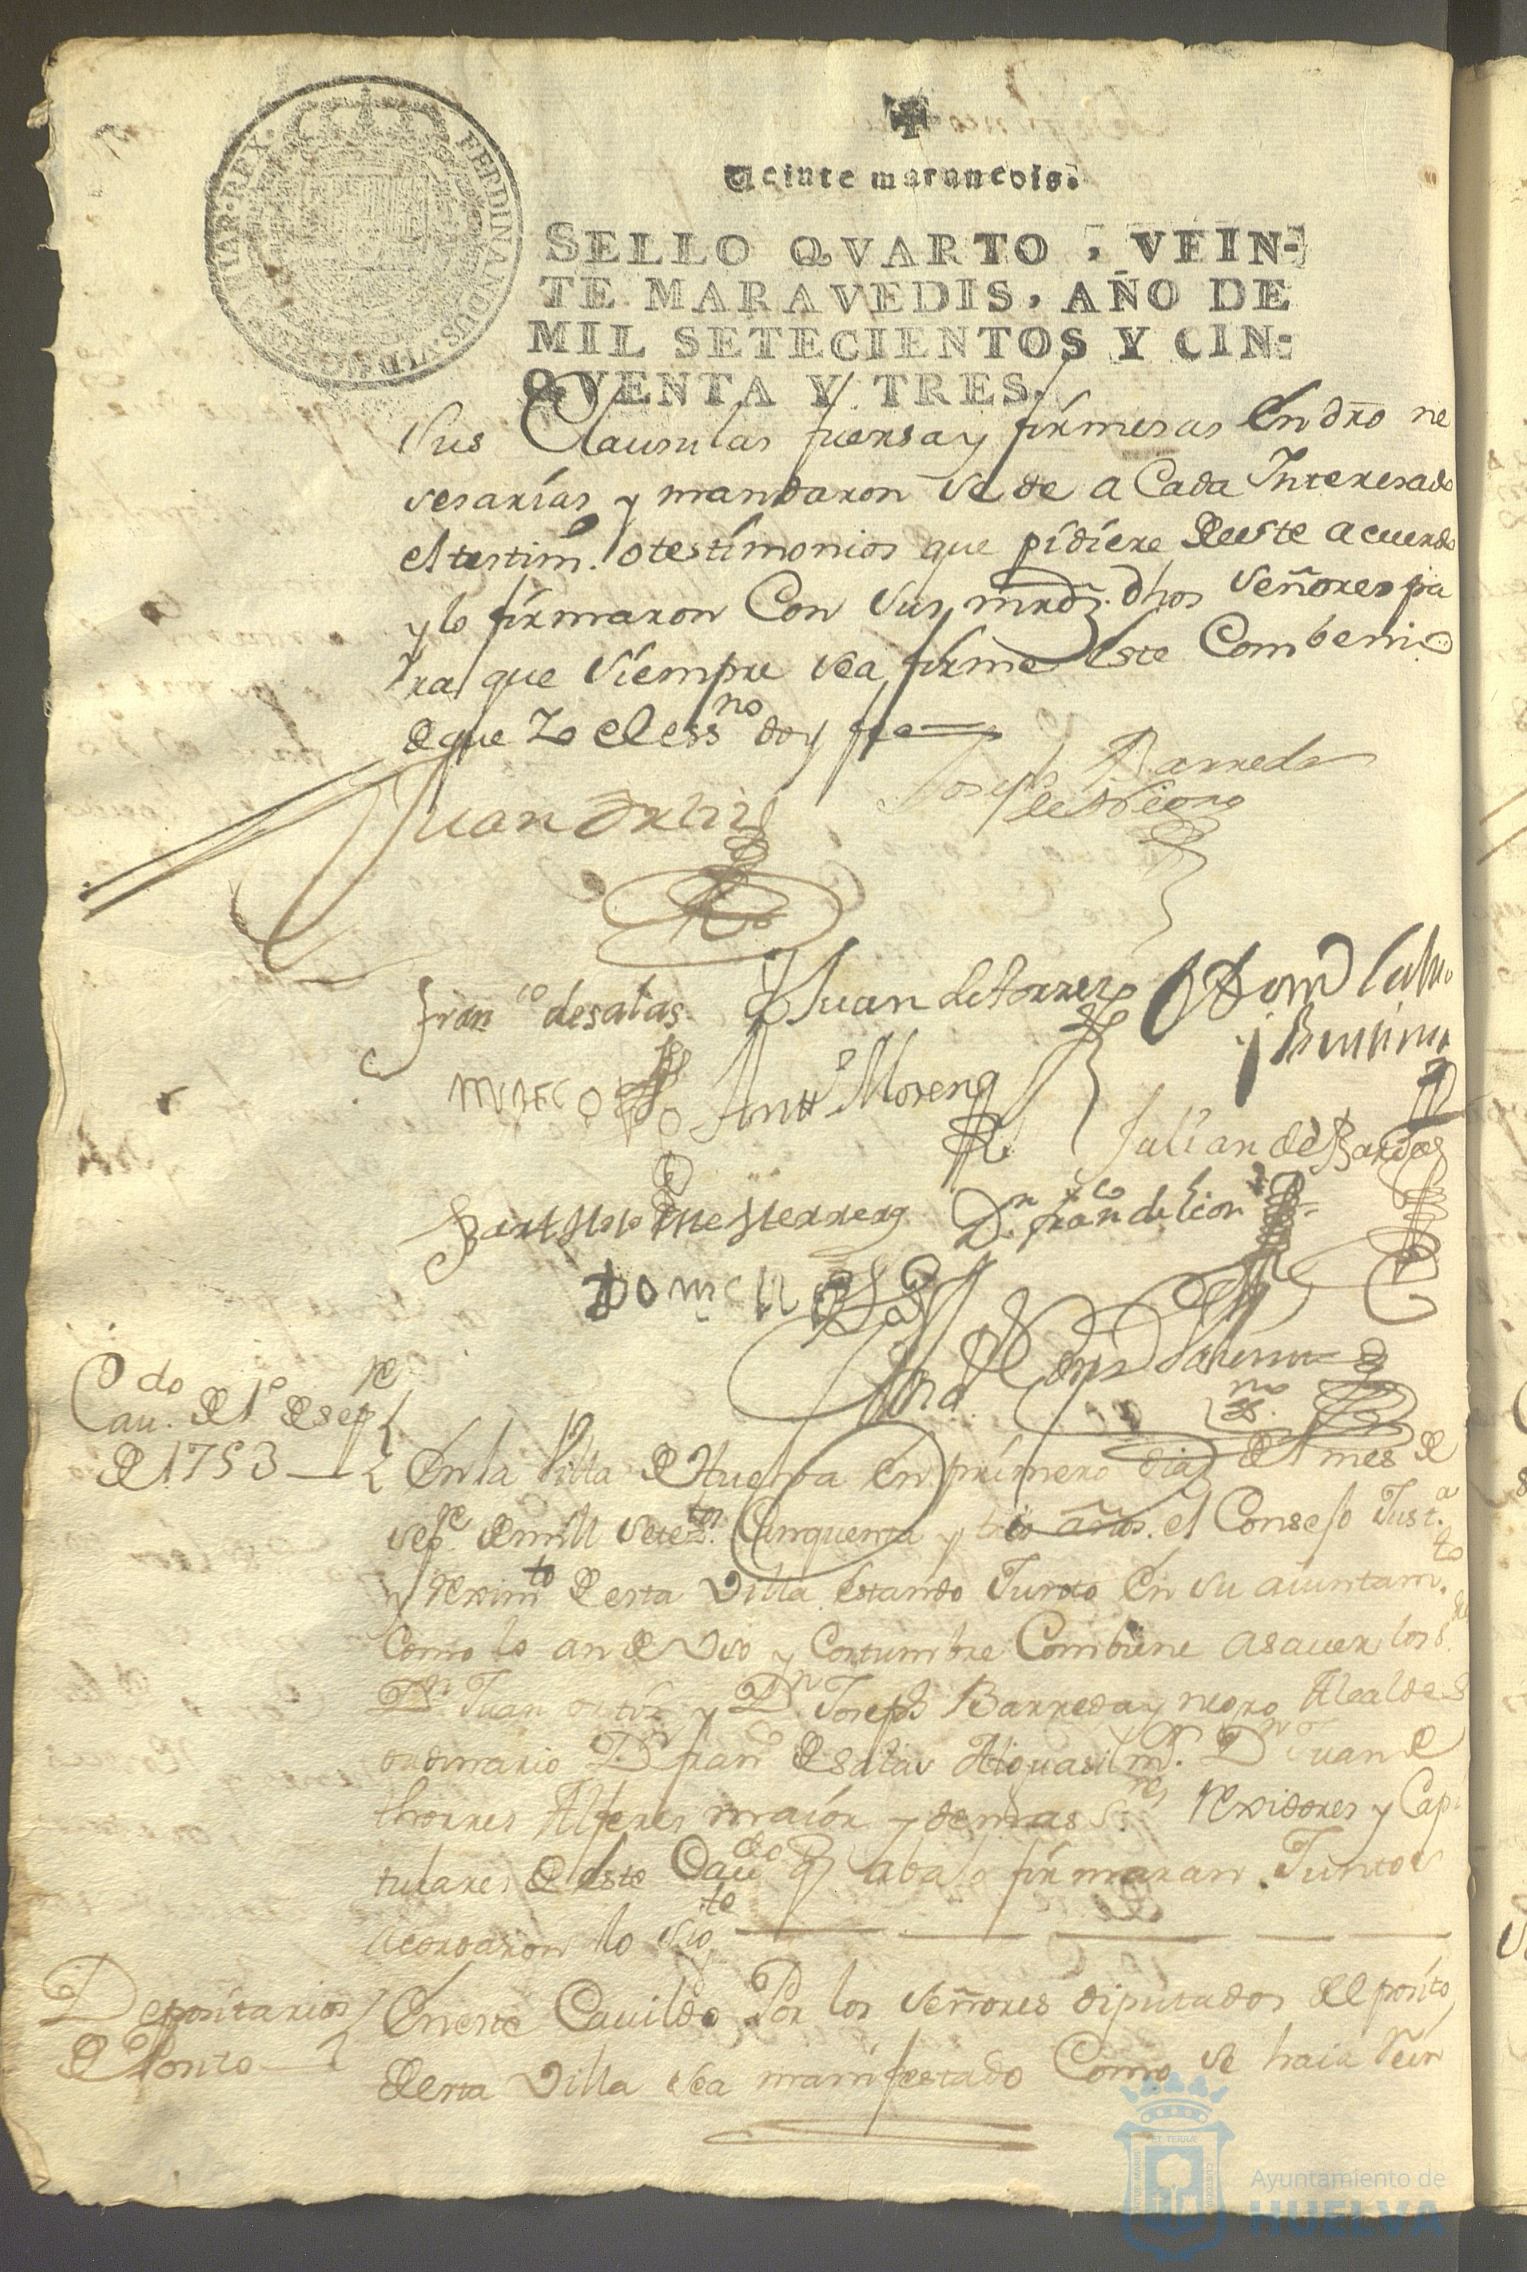 FERDINANDUS·VI·D·G·
HISPANIAR·REX·
Veinte maravedis.
SELLO QVARTO, VEIN-
TE MARAVEDIS, AÑO DE
MIL SETECIENTOS Y CIN-
QVENTA Y TRES.
sus Clausulas fuersa y firmesas En dro ne
sesarias y mandaron se de a Cada Interesado
el testim.º o testimonios que pidiere de este acuerdo
y lo firmaron Con sus mrdz. dhos señores pa
ra que siempre sea firme este Combenio
de que Yo el essno doy fee
Juan Ortiz
Joseph Barreda
y Negro
Franco de salas
Juan de torres
Antto Moreno
Julian de
Dn franco de leon
Cavdo de 1º de sepe
de 1753
En la Villa de Huelva en primero dia del mes de
sepe de mill setesos Cinquenta y tres años el Consejo Justa
y Reximto de esta Villa estando Junto En su aiuntamto
Como lo an de Vso y Costumbre Combiene asaver los Sres
Dn Juan ortiz y Dn Joseph Barreda y negro Alcaldes
ordinario Dn franco de salas Alguasil mr. Dn Juan de
thorres Alferes maior y demas Sres Rexidores y Capi
tulares de este Cavdo q abajo firmaran Juntos
acordaron lo sigte
Depositarios
de Posito
En este Cavildo Por los señores diputados del posito
de esta Villa sea manifestado Como se haia
Ayuntamiento de
HUELVA